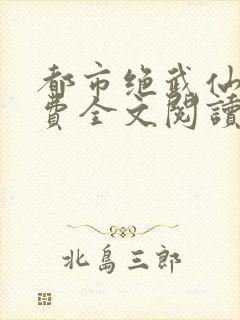 都市绝武仙
費全文閱讀
北島三郎